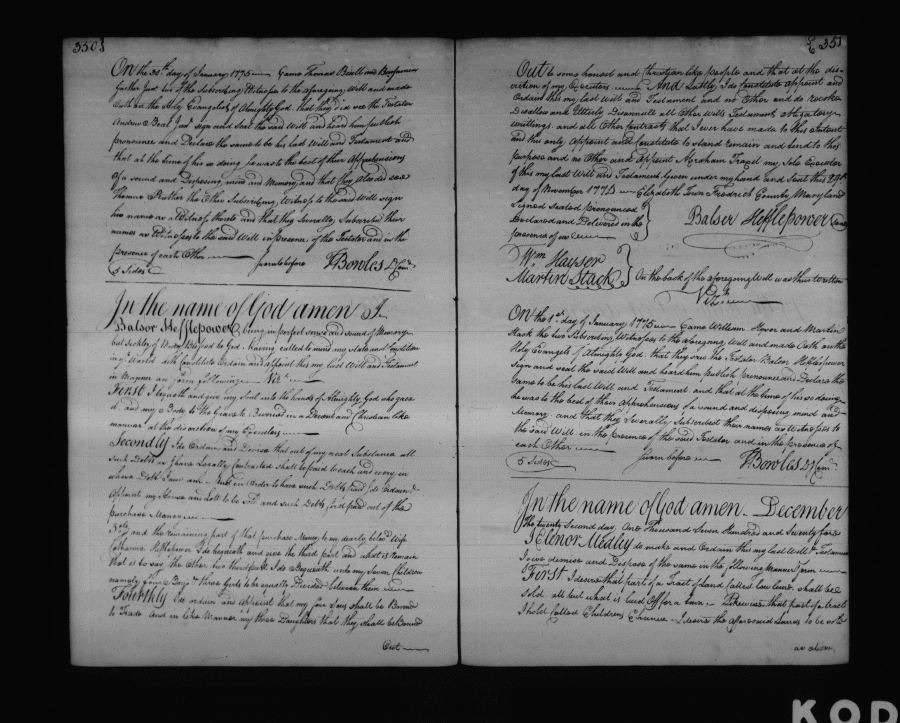 350}
On the 30th day of January 1775 Came Thomas Beall and Benjamin
two of the Subscribing Witnesses to the aforegoing Will and made
Oath on the Holy Evangels of Almighty God that they did see the Testator
Andrew Beal sign and Seal the said Will and heard him publish
pronounce and Declare the same to be his last Will and Testament and
that at the time of his so doing he was to the best of their Apprehensions
of a sound and Disposing mind and Memory and that they also did see
Thomas the Other Subscribing Witness to the said Will sign
his name as a Witness thereto and that they Severally Subscribed their
names as Witnesses to the said Will in presence of the Testator and in the
presence of each Other
5 Sides Sworn before T Bowles
In the name of God amen I
Balser Hefflepower being in perfect sences and sound of Memory
but sickley of Body Blessed be God having called to mind my State and Condition
in World doth Constitute Ordain and appoint this my last Will and Testament
in Manner and form following Viz
First I bequeath and give my Soul into the hands of Almighty God who gave
it and my Body to the Grave to be Buried in a Decent and Christian like
manner at the discretion of my Executors
Secondly I do Ordain and Devise that out of my real Substance all
such Debts as I have Loyally Contracted shall be paid to each and every in
whose Debt I am and in Order to have such Debts paid I do Ordain &
Appoint my House and Lott to be and such Debts first paid out of the
purchase Money
3dly and the remaining part of that purchase Money to my dearly beloved Wife
Catharine Hefflepower I do bequeath and give the third part and what is remain
that is to say the Other two third parts I do Bequeath unto my Seven Children
namely four Boys & three Girls to be equally Devided between them
Fourthly I do ordain and appoint that my four Sons shall be Bound
to Trade And in like Manner my three Daughters that they shall be Bound
Out
351
Out to some honest and Christian like people and that at the dis=
=cretion of my Executors And Lastly I do Constitute appoint and
Ordain this my last Will and Testament and no Other and do revoke
Disallow and Utterly Disannull all Other Wills Testament obligatory
writtings and all Other Contracts that I ever have made to this Intent
and this only appoint and Constitute to stand remain and bend to this
purpose and no Other and appoint Abraham my Sole Executor
of this my last Will and Testament Given under my hand and Seal this 29th
day of November 1773 Elizabeth Town Fredrick County Maryland
Signed Sealed pronounced
Declared and Delivered in the
presence of us
Balser Hefflepower
Wm Hayser
Martin Stack
On the back of the aforegoing Will was thus written
Vizt
On the 1st day of January 1775 Came William and Martin
Stack the two Subscribing Witnesses to the aforegoing Will and made Oath on the
Holy Evangels of Almighty God that they saw the Testator Balser Hefflepower
Sign and seal the said Will and heard him publish pronounce and Declare the
same to be his last Will and Testament and that at the time of his so doing
he was to the best of their Apprehensions of a sound and disposing mind and
Memory and that they Severally Subscribed their names as Witnesses to
the said Will in the presence of the said Testator and in the presence of
each Other
5 Sides Sworn before T Bowles
In the name of God amen December
the twenty Second day One Thousand Seven Hundred and Seventy four
I Elenor Medley do make and Ordain this my last Will & Testament
I give demise and Dispose of the same in the following Manner & form
First I desire that part of a tract of Land Called shall be
Sold all but what is laid Off for a Town Likewise that part of a tract
I hold Called Childrens Chance I desire the aforesaid Lands to be sold
as above
KOD